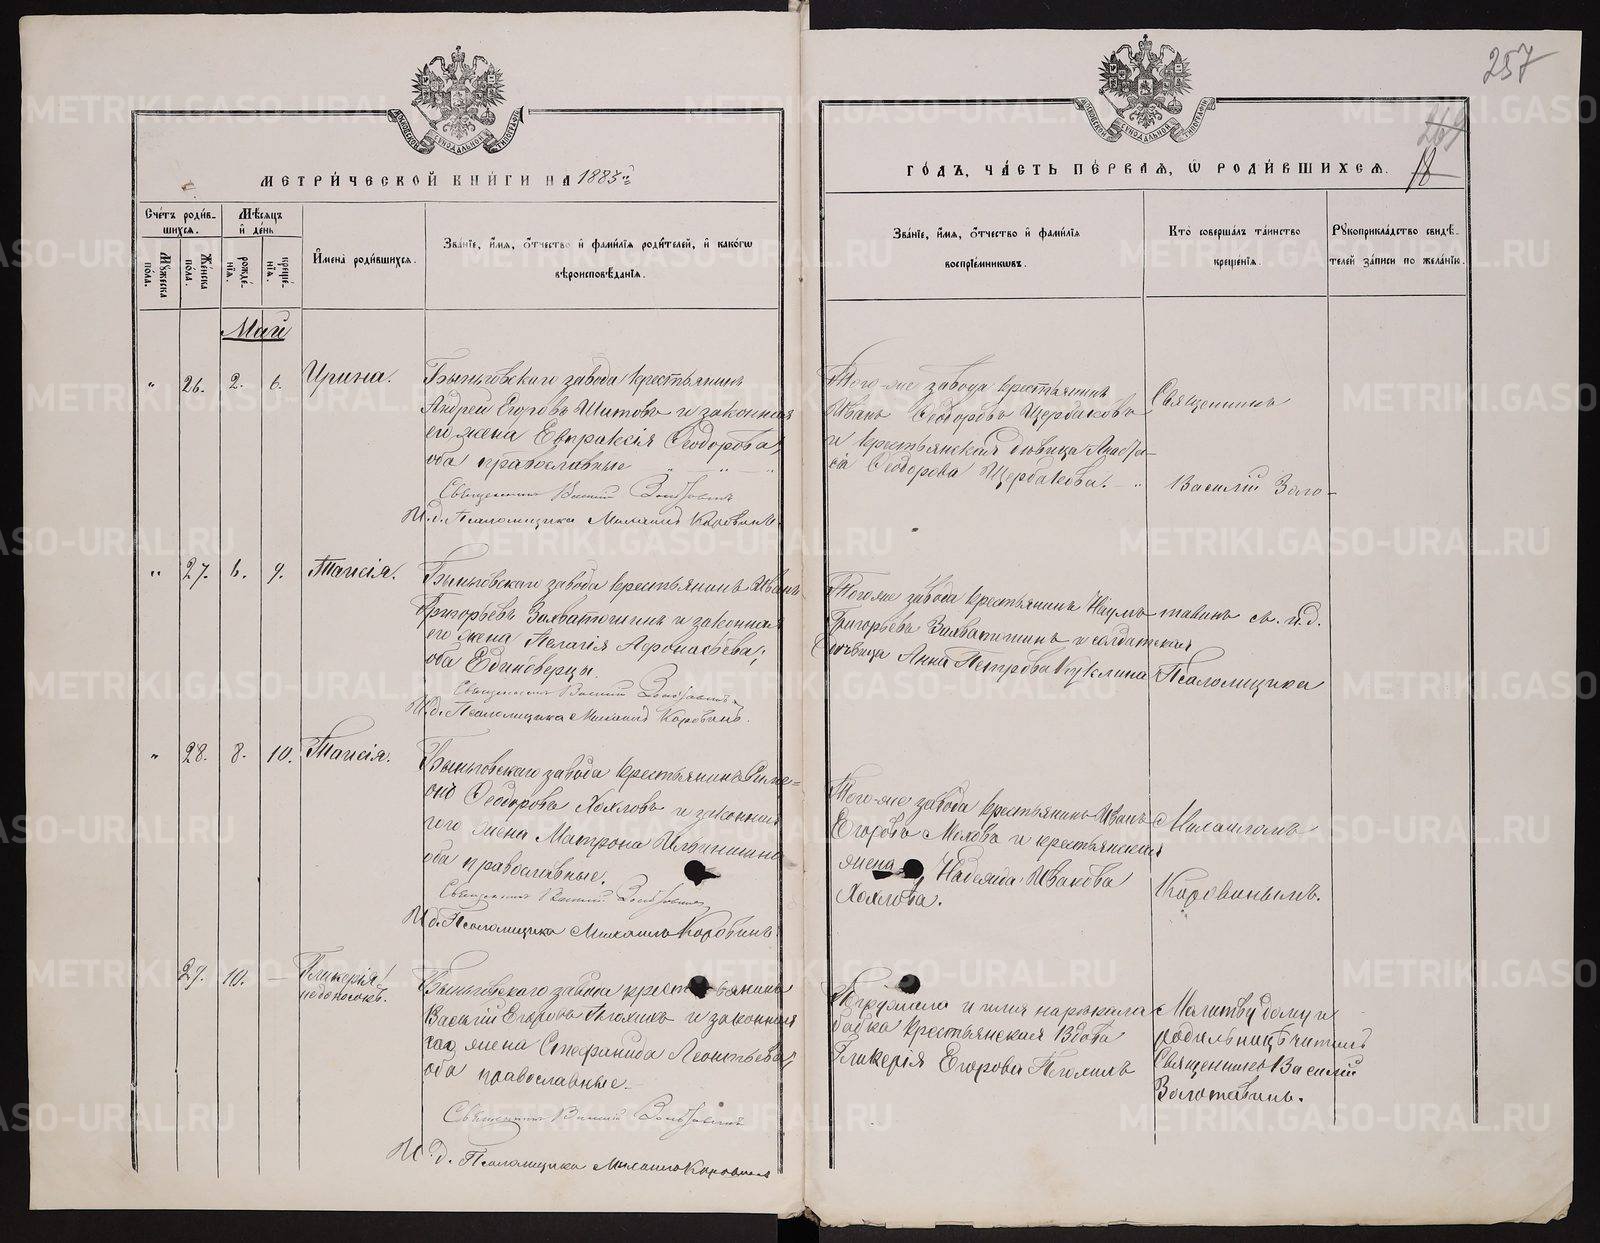 257
269
18
МЕТРИ́ЧЕСКОЙ КНИ́ГИ НА 1885й
ГО́ДЪ, ЧА́СТЬ ПЕ́РВАѦ, Ѿ РОДИ́ВШИХСѦ.
Сче́тъ роди́в-
шихсѧ.
Мꙋжеска по́ла.
Же́нска по́ла.
Мѣ́сѧцъ
и҆ де́нь
рожде́-
нїѧ.
креще́-
нїѧ.
И҆мена̀ роди́вшихсѧ.
Зва́нїе, и҆́мѧ, ѻ҆́тчество и҆ фами́лїѧ роди́телей, и҆ како́гѡ
вѣроисповѣ́данїѧ.
Зва́нїе, и҆́мѧ, ѻ҆́тчество и҆ фами́лїѧ
воспрїе́мникѡвъ.
Кто̀ соверша́лъ та́инство
креще́нїѧ.
Рꙋкоприкла́дство свидѣ́-
телей за́писи по жела́нїю.
Май
" 26. 2. 6. Ирина.
Быньговскаго завода крестьянинъ
Андрей Егоровъ Шитовъ и законная
его жена Евпраксія Ѳеодорова,
оба православные
Священникъ Василій Золотавинъ
И. д. Псаломщика Михаилъ Коровинъ.
Того-же завода крестьянинъ
Иванъ Ѳеодоровъ Щербаковъ
и крестьянская дѣвица Анаста-
сія Ѳеодорова Щербакова.
Священникъ
Василій Золо-
" 27. 6. 9. Таисія.
Быньговскаго завода крестьянинъ Иванъ
Григорьевъ Захватошинъ и законная
его жена Пелагія Аѳонасьева,
оба Единоверцы.
Священникъ Василій Золотавинъ
И. д. Псаломщика Михаилъ Коровинъ.
Того-же завода крестьянинъ Наумъ
Григорьевъ Захватошинъ и солдатская
дѣвица Анна Петрова Куклина
тавинъ съ и. д.
Псаломщика
" 28. 8. 10. Таисія.
Быньговскаго завода крестьянинъ Симе-
онъ Ѳеодоровъ Хохловъ и законная
его жена Матрона Ильинична
оба православные.
Священникъ Василій Золотавинъ
И. д. Псаломщика Михаилъ Коровинъ.
Того-же завода крестьянинъ Иванъ
Егоровъ Моховъ и крестьянская
жена Надежда Ивакова
Хохлова.
Михаиломъ
Коровинымъ.
29. 10. — Гликерія
недоносокъ.
Быньговскаго завода крестьянинъ
Василій Егоровъ и законная
его жена Стефанида Леонтьева,
оба православные.
Священникъ Василій Золотавинъ
И. д. Псаломщика Михаилъ Коровинъ
Погружала и имя нарекала
бабка крестьянская вдова
Гликерія Егорова
Молитву дому и
родильницѣ читалъ
Священникъ Василій
Золотавинъ.